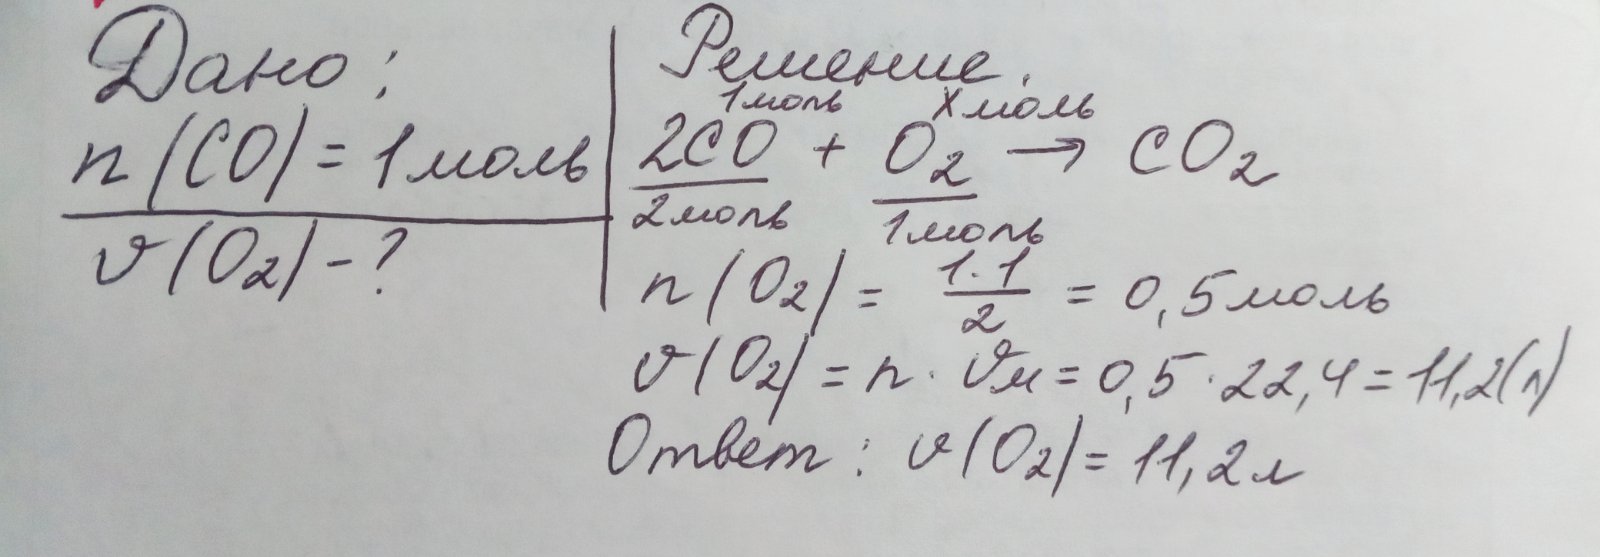 Дано:
n(CO) = 1 моль
v(O₂) - ?
Решение.
1 моль x моль
2CO + O₂ → CO₂
2 моль 1 моль
n(O₂) = 1·1/2 = 0,5 моль
v(O₂) = n · vм = 0,5 · 22,4 = 11,2 (л)
Ответ: v(O₂) = 11,2 л